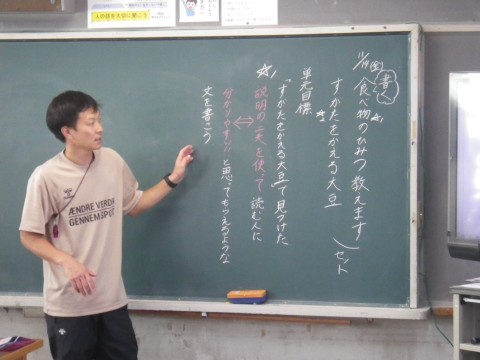 11/19(金)
書く
食べ物のひみつ教えます
すがたをかえる大豆
セット
単元目標
「すがたをかえる大豆」で見つけた
説明の工夫を使って読む人に
分かりやすい!!と思ってもらえるような
文を書こう
ÆNDRE VERDEN
GENNEMSPORT